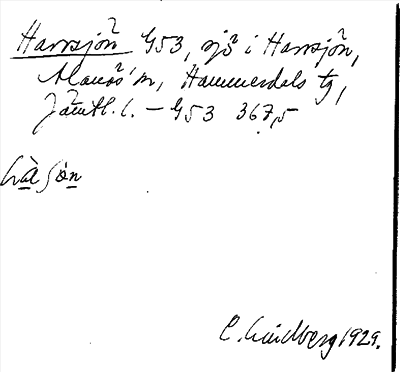 Harrsjön G53, sjö i Harrsjön,
Alanäs sn, Hammerdals tg,
Jämtl. l. – G53 367,5
hàſơn
C. Lindberg 1929.